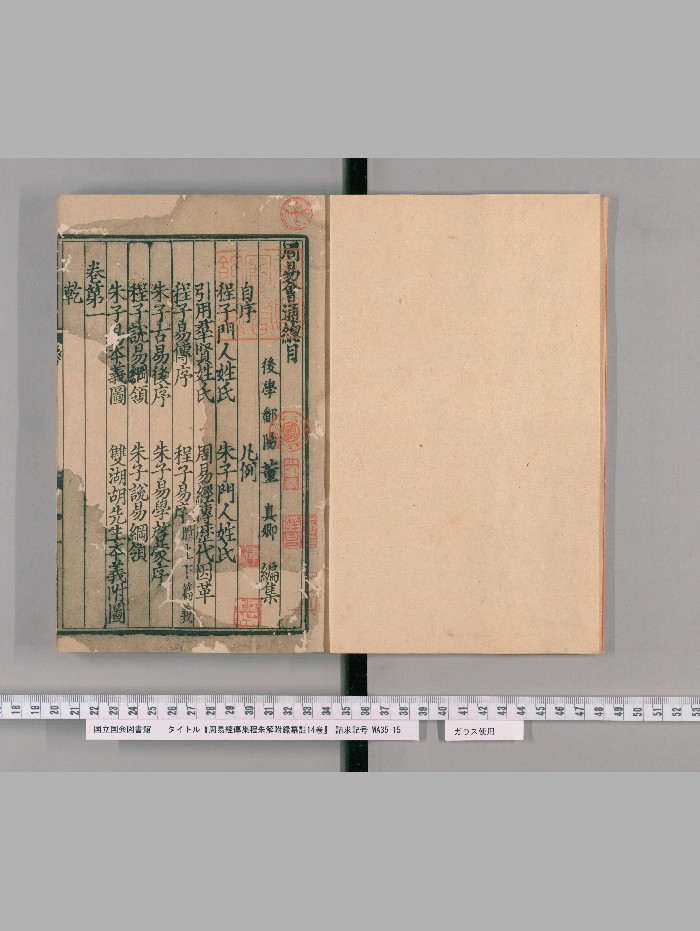 周易會通總目
後學鄱陽董真卿編集
自序 凡例
程子門人姓氏 朱子門人姓氏
引用羣賢姓氏 周易經傳歷代因革
程子易傳序 程子易序
朱子古易後序 朱子易學啓蒙序
程子說易綱領 朱子說易綱領
朱子易本義圖 雙湖胡先生本義附圖
卷第一
乾
国立国会図書館 タイトル『周易経傳集程朱解附録纂註14巻』 請求記号 WA35-15
ガラス使用
18 19 20 21 22 23 24 25 26 27 28 29 30 31 32 33 34 35 36 37 38 39 40 41 42 43 44 45 46 47 48 49 50 51 52 53